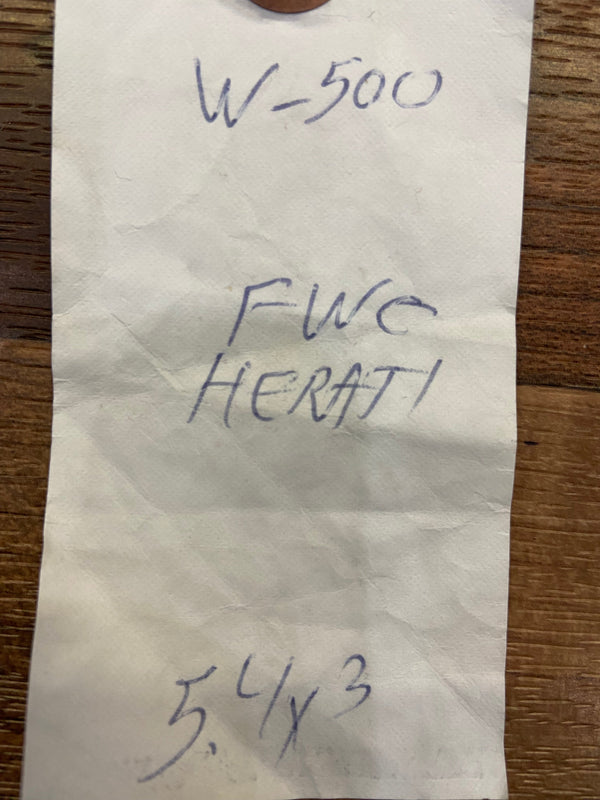 W-500
FWC
HERATI
5.4x3